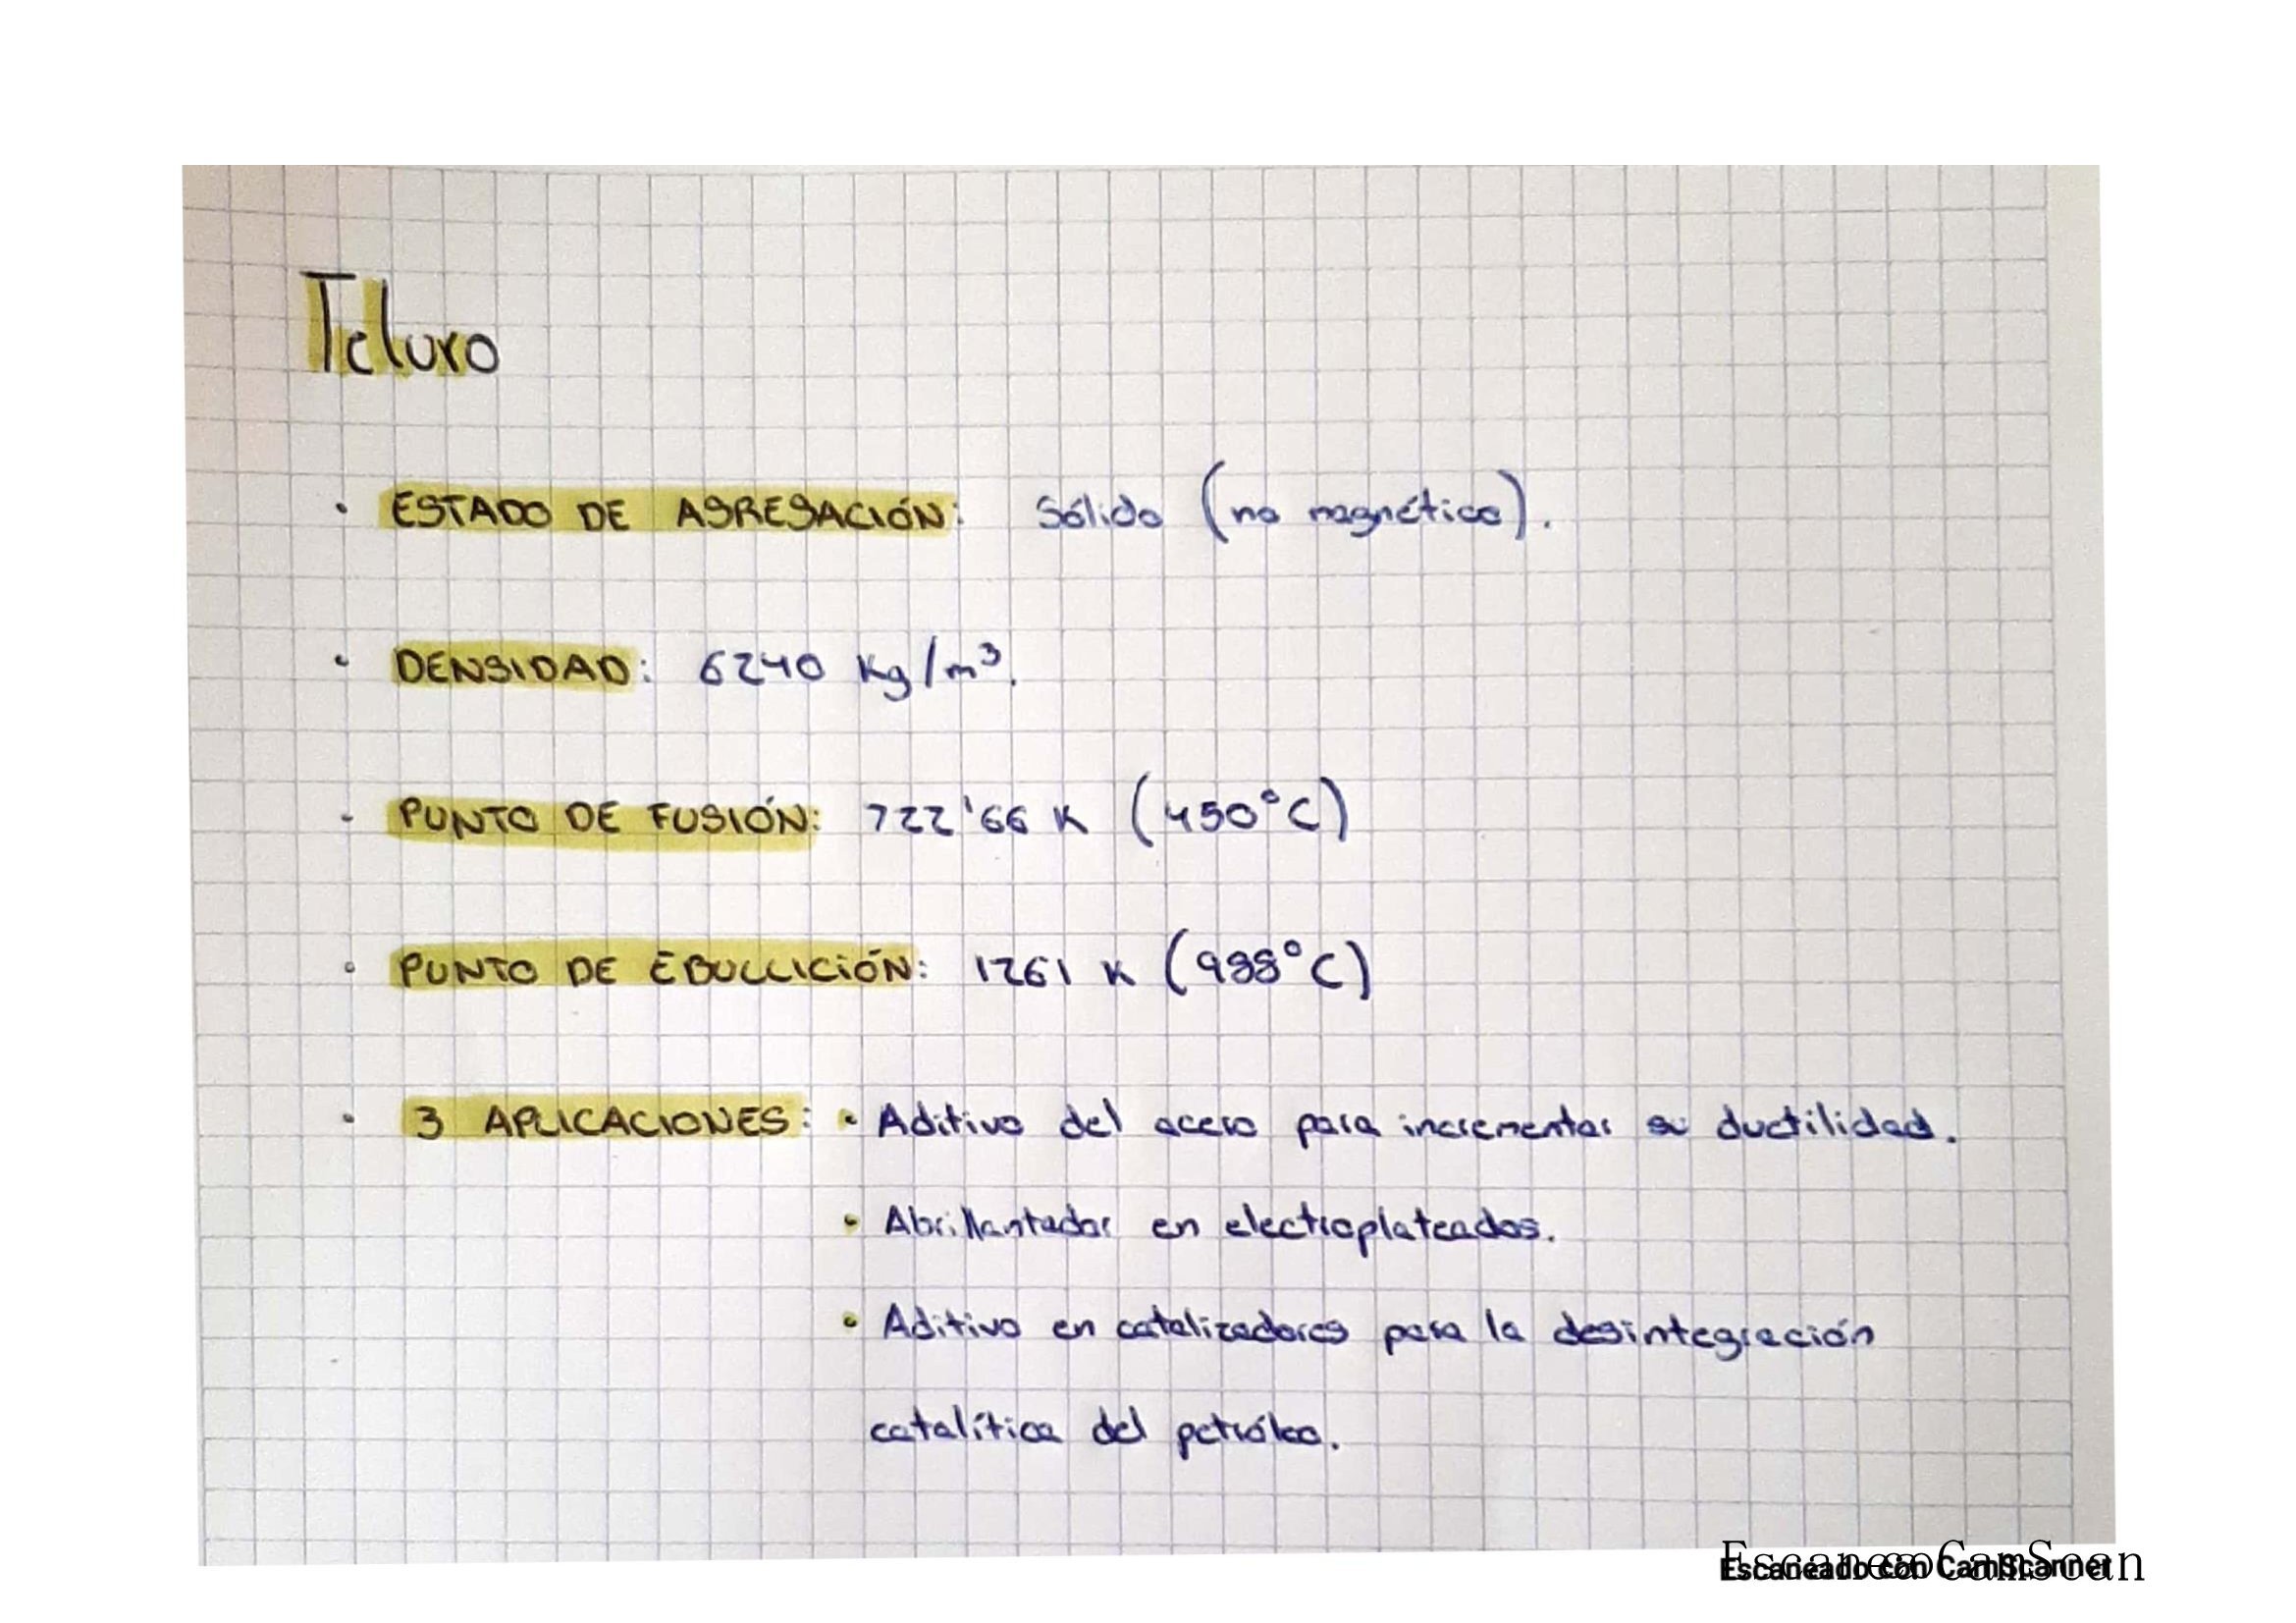 Teluro
· ESTADO DE AGREGACIÓN: Sólido (no magnético).
· DENSIDAD: 6240 Kg/m³.
· PUNTO DE FUSIÓN: 722'66 K (450°C)
· PUNTO DE EBULLICIÓN: 1261 K (988°C)
· 3 APLICACIONES: • Aditivo del acero para incrementar su ductilidad.
• Abrillantador en electroplateados.
• Aditivo en catalizadores para la desintegración
catalítica del petróleo.
Escaneado con CamScanner